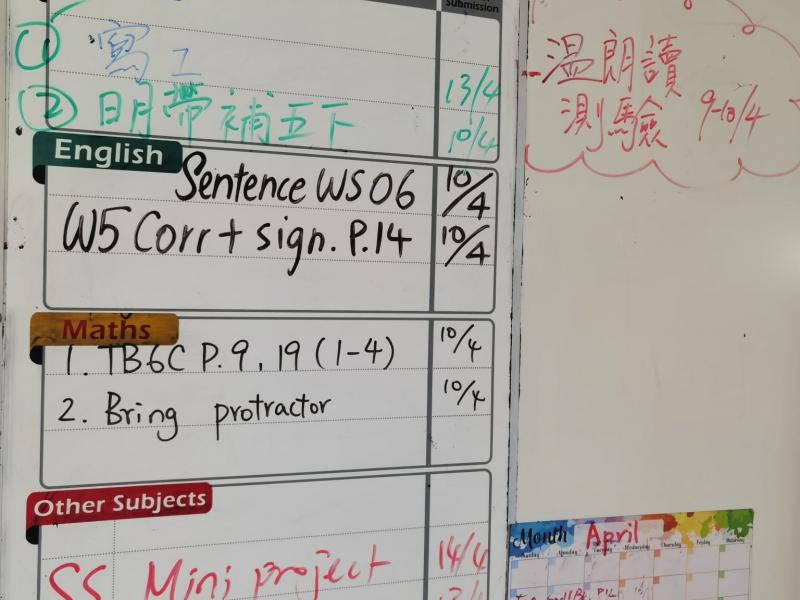 Submission
① 寫工 13/4
② 明帶補五下 10/4
English
Sentence WS 06 10/4
W5 Corr + sign. P.14 10/4
Maths
1. TB6C P.9, 19 (1-4) 10/4
2. Bring protractor 10/4
Other Subjects
SS Mini project 14/4
溫朗讀
測驗 9-10/4
Month April
Monday Tuesday Wednesday Thursday Friday Saturday